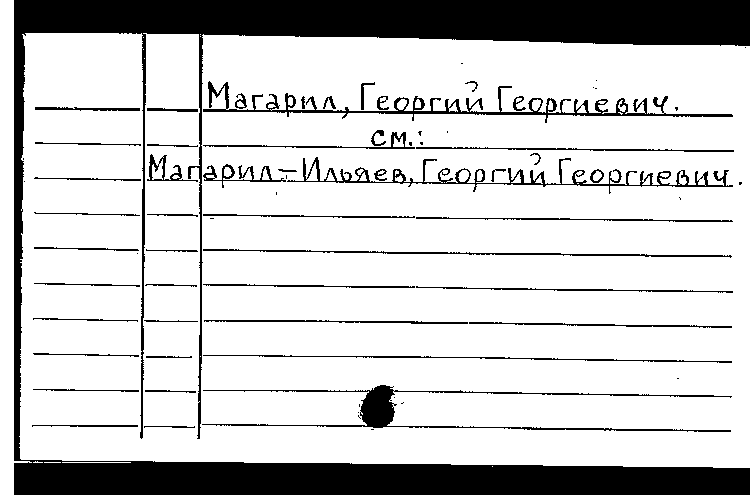 Магарил, Георгий Георгиевич.
см.:
Магарил-Ильяев, Георгий Георгиевич.